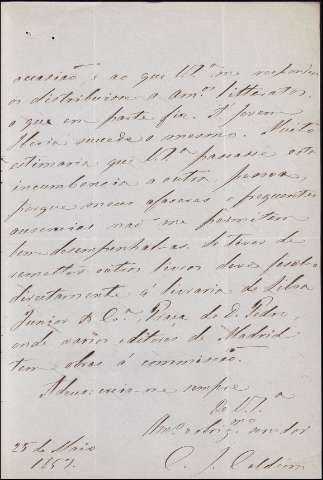 occasião, e ao que V.ª me respondeu
os distribuisse a Am.ᵒˢ litteratos,
o que em parte fiz. A Joven
Iberia succede o mesmo. Muito
estimaria que V.ª passasse esta
incumbencia a outra pessoa,
porque meus afazeres e frequentes
ausencias não me permittem
bem desempenhal-as. de
semelhes outros livros deve
directamente á livraria de Silva
Junior & Co.ª, Praça de D. Pedro,
onde varios editores de Madrid
tem obras á commissão.
sempre
De V.ª
Am.º e obrig.ᵐᵒ servidor
25 de Maio
1857.
C. J. Caldeira